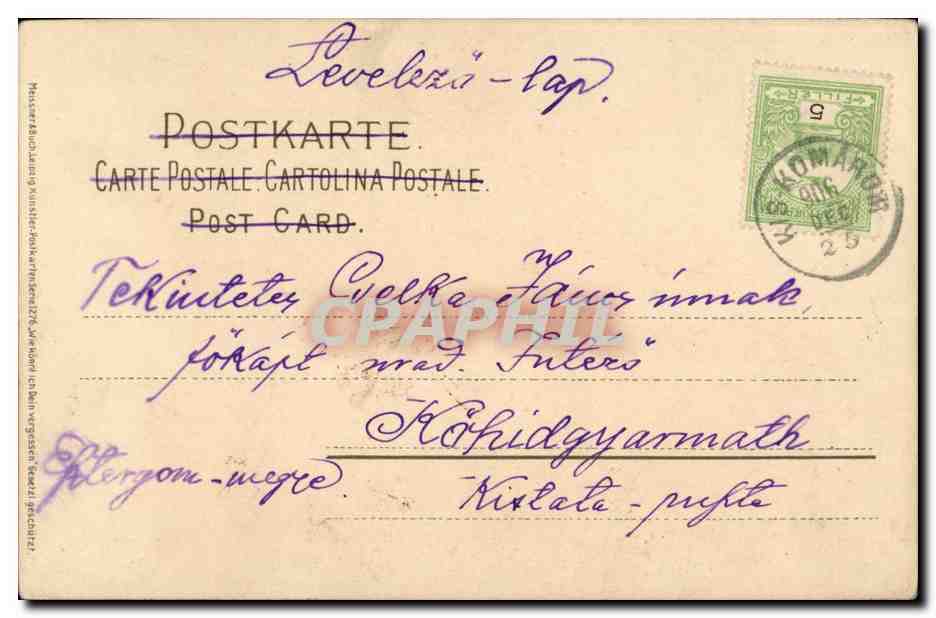 Levelező-lap.
POSTKARTE.
CARTE POSTALE. CARTOLINA POSTALE.
POST CARD.
FILLÉR
5
KOMÁROM
906
DEC
25
Tekintetes Cselka János úrnak
CPAPHIL
főkápt urad. Intéző
Kőhidgyarmath
Esztergom-megye.
Kistata-puszta
Meissner & Buch, Leipzig. Künstler-Postkarten Serie 1276 „Wie könnt ich Dein vergessen" Gesetzl. geschützt.